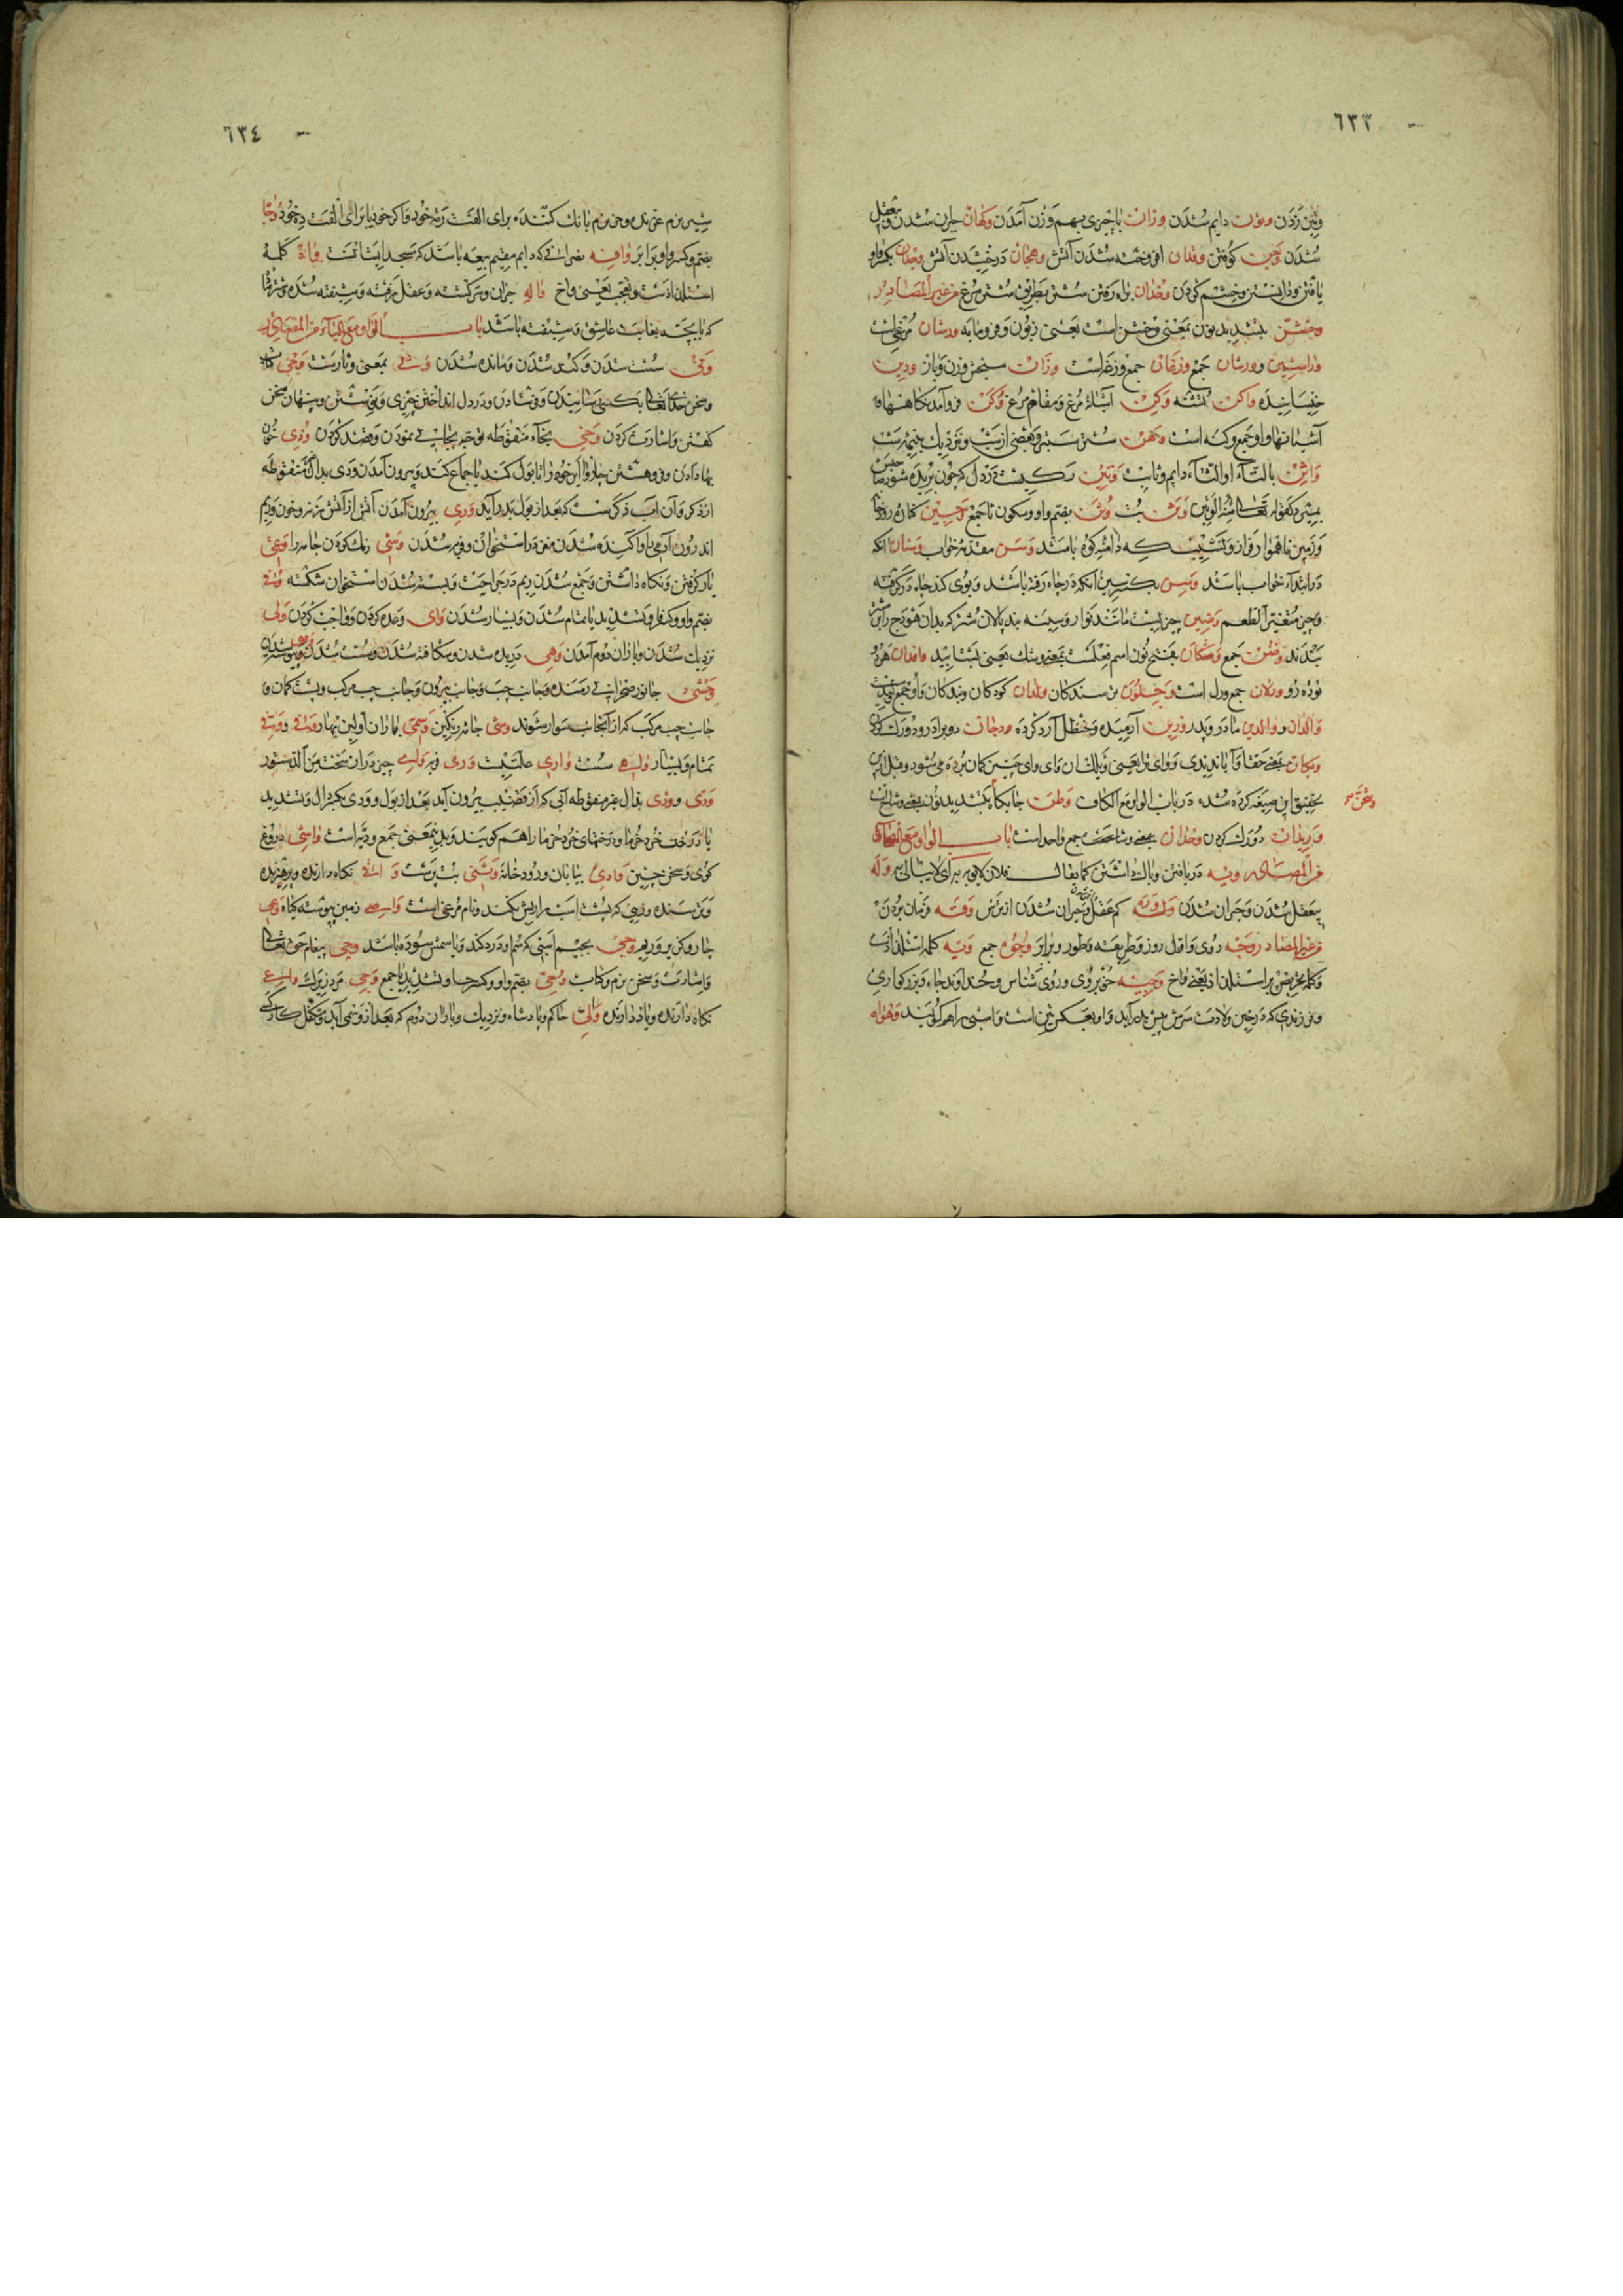 ٦٣٣
وتين زدن وتون دايم شدن وزان با چيزى بهم وزن آمدن وكهان حيران شدن و بيعقل
شدن وجين كوفتن وقدان افروخته شدن آتش وهجان درخشيدن آتش وجدان بكسر واو
يافتن و دانستن و خشم كردن وخدان براه رفتن شتر بطريق شتر مرغ من غير المصادر
بتشديد نون بمعنى وخش است يعنى زبون و فرومايه ورشان مرغى است
وراشين وورشان جمع وزغان جمع وزغ است وزان سنجش وزن و باز ودين
خيسانيده واكن نشسته وكن آشيانه مرغ و مقام مرغ وكن فرو آمدنكاهها و
آشيانها و او جمع وكنه است وهن شتر سبر و بعضى از شب و نزديك بنيم شب
واتن بالتاء او الثاء دايم و ثابت وتين ركيست در دل كه چون بريده شود صاحبش
بميرد كقوله تعالى منه الوتين وثن بت وثن بضم واو و سكون ثا جمع وجين كناره رودخا
و زمين ناهموار و فراز و نشيب كه دامنه كوه باشد وسن مقدمه خواب وسنان آنكه
در ابتداء خواب باشد وسن بكسر سين آنكه در چاه رفته باشد و بوى كند چاه در گرفته
و چيز متغير الطعم وضين چيزيست مانند نوار و سينه بند پالان شتر كه بدان هودج را بر شتر
بندند وضن جمع وشكان بفتح نون اسم فعلست بمعنى وشك يعنى بشتابيد وافدان هر دو
توده رو ورلان جمع ورل است وجلون ترسندكان ولدان كودكان و بندكان و او جمع وليد است
والدان و والدين مادر و پدر وزين آرميده و حنظل آرد كرده ودجان دو برادر و دو رك كردن
ويكان بمعنى حقا و آيا نديدى و واى ترا يعنى ويلك ان واى واى چنين كمان برده مى شود و قبل ازين
تحقيق اين صيغه كرده شده در باب الواو مع الكاف وطن جايگاه بتشديد نون
وريدان دو رك كردن وحدان جمع واحد است باب الواو مع الهاء
من المصادر وبه دريافتن و باك داشتن كما يقال فلان لا يوبه به اى لا يبالى به وله
بيعقل شدن و حيران شدن كم عقل و حيران شدن از ترس وقه فرمان بردن
من غير المصادر وجه روى و اول روز و طريقه و طور و برابر وجوه جمع ويه كلمه استلذاذ است
و كلمه تحريض بر استلذاذ يعنى واخ وجيه خوبروى و روى شناس و خداوند جاه و بزركوارى
و فرزندى كه در حين ولادت سرش پيش بدر آيد و او بعكس يتن است و اسبى را هم كويند وهواه
٦٣٤
شير نرم غرنده و خر نرم بانك كننده براى الفت رمه خود و آكر خود يا براى الفت دخود وجا
بضم و كسر واو برابر وافه نصرانى كه دايم مقيم بيعه باشد كه مسجد ايشانست واه كلمه
استلذاذ است و تعجب يعنى واخ واله حيران و سركشته و عقل رفته و شيفته شده و شترى
كه با بچه بغايت عاشق و شيفته باشد باب الواو مع الياء من المصادر
ونى سست شدن و كند شدن و مانده شدن وشى بمعنى وثارست وحى
و سخن خداى تعالى بكسى رسانيدن و فرستادن و در دل انداختن چيزى و نوشتن و پنهان سخن
كفتن و اشارت كردن وخى بخاء منقوطه توجه بجانبى نمودن و قصد كردن ودى خون
بها دادن و فرو هشتن چاروا اير خود را تا بول كند يا جماع كند و بيرون آمدن ودى بدال منقوطه
از ذكر و آن آب ذكريست كه بعد از بول بدر آيد ورى بيرون آمدن آتش از آتش زنه و خون و ريم
اندرون آدمى را و آكنده شدن مغز در استخوان و فربه شدن وشى رنك كردن جامه را وعى
ياد كرفتن و نكاه داشتن و جمع شدن ريم در جراحت و بسته شدن استخوان شكسته وفى
بضم واو و كسر فا و بتشديد يا تمام شدن و بسيار شدن واى وعده كردن و واجب كردن ولى
نزديك شدن و باران دوم آمدن وهى دريده شدن و شكافته شدن و سست شدن
وحشى جانور صحرايى رمنده و جانب چپ و جانب بيرون و جانب چپ مركب و پشت كمان و
جانب چپ مركب كه از آنجانب سوار شوند وشى جامه رنكين وسمى باران اولين بهار وفى
تمام و بسيار واهى سست وارى علتيست ورى فربه چيز دران سخت من الدستور
ودى وودى بذال غير منقوطه آبى كه از قضيب بيرون آيد بعد از بول و ودى بكسر دال و بتشديد
يا درخت خرد خرما و درختهاى خرد خرما را هم كويند و بدينمعنى جمع وديه است واشى دروغ
كوى و سخن چين وادى بيابان و رودخانه وثنى بت پرست واقى نكاه دارنده و پرهيزنده
و ترسنده و زينى كه پشت اسب را ريش نكند و نام مرغى است واصى زمين پيوسته كياه وعى
جاروكن بر و ريم وجى بجيم اسبى كه سم او درد كند و يا سمش سوده باشد وحى پيغام حق تعالى
و اشارت و سخن نرم و كتاب وحى بضم واو و كسر حا و تشديد يا جمع وحى مرد زيرك واعى
نكاه دارنده و ياد دارنده والى حاكم و پادشاه و نزديك و باران دوم كه بعد از وسمى آيد و متكفل كار كسى